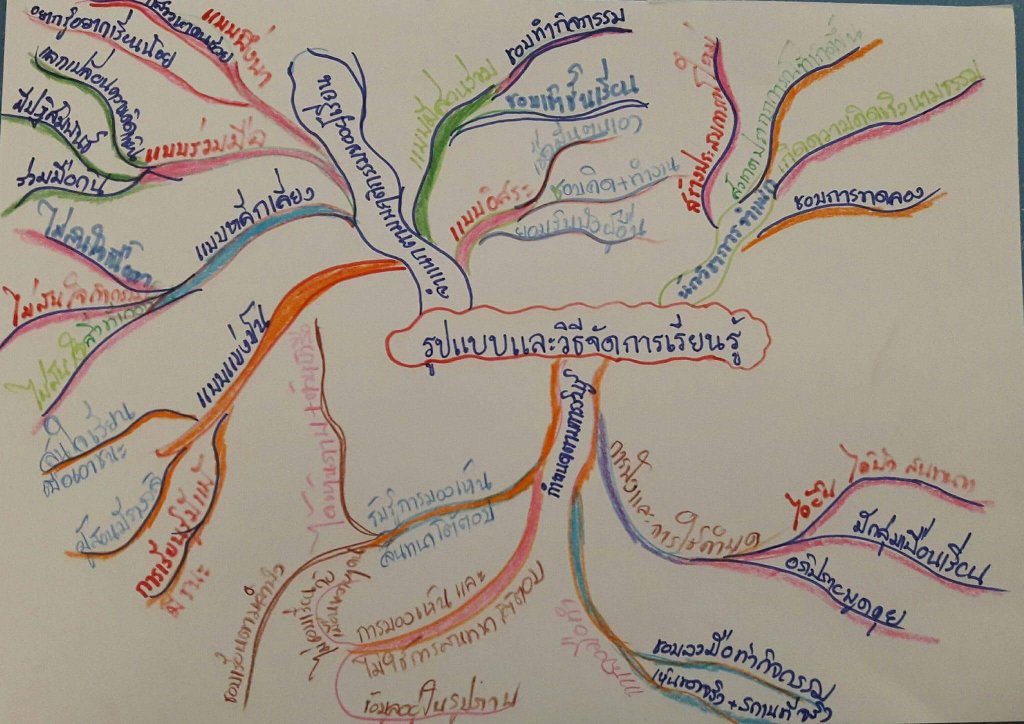 รูปแบบและวิธีจัดการเรียนรู้
แบบพึ่งพา
อยากรู้อยากเรียนน้อย
แบบร่วมมือ
แลกเปลี่ยนความคิดเห็น
มีปฏิสัมพันธ์
ร่วมมือกัน
แบบหลีกเลี่ยง
ไม่สนใจเนื้อหา
ไม่สนใจกิจกรรม
ไม่สนใจ
แบบแข่งขัน
สนใจเรียน
เพื่อเอาชนะ
การเรียนรู้มีแพ้
มีชนะ
แบบมีส่วนร่วม
ชอบทำกิจกรรม
ชอบเข้าชั้นเรียน
แบบอิสระ
เชื่อมั่นตนเอง
ชอบคิด+ทำงาน
ยอมรับฟังผู้อื่น
นักวิชาการจำแนก
สร้างประสบการณ์ใหม่
เกิดความคิดเชิงนามธรรม
ชอบการทดลอง
กำหนดตามการรับรู้
การฟังและการใช้คำพูด
ได้ยิน
ได้ฟัง สนทนา
มีกลุ่มเพื่อนเรียน
อภิปรายพูดคุย
ชอบลงมือทำกิจกรรม
เห็นของจริง+สถานที่จริง
การมองเห็น และ
ไม่ใช้การสนทนาโต้ตอบ
ข้อมูลอยู่ในรูปภาพ
รับรู้การมองเห็น
สนทนาโต้ตอบ